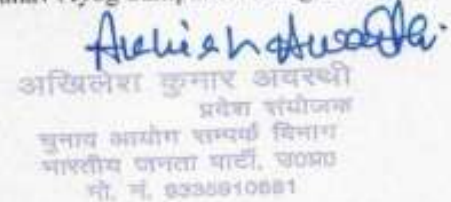 अखिलेश कुमार अवस्थी
प्रदेश संयोजक
चुनाव आयोग सम्पर्क विभाग
भारतीय जनता पार्टी, उ०प्र०
मो. नं. 9335910681